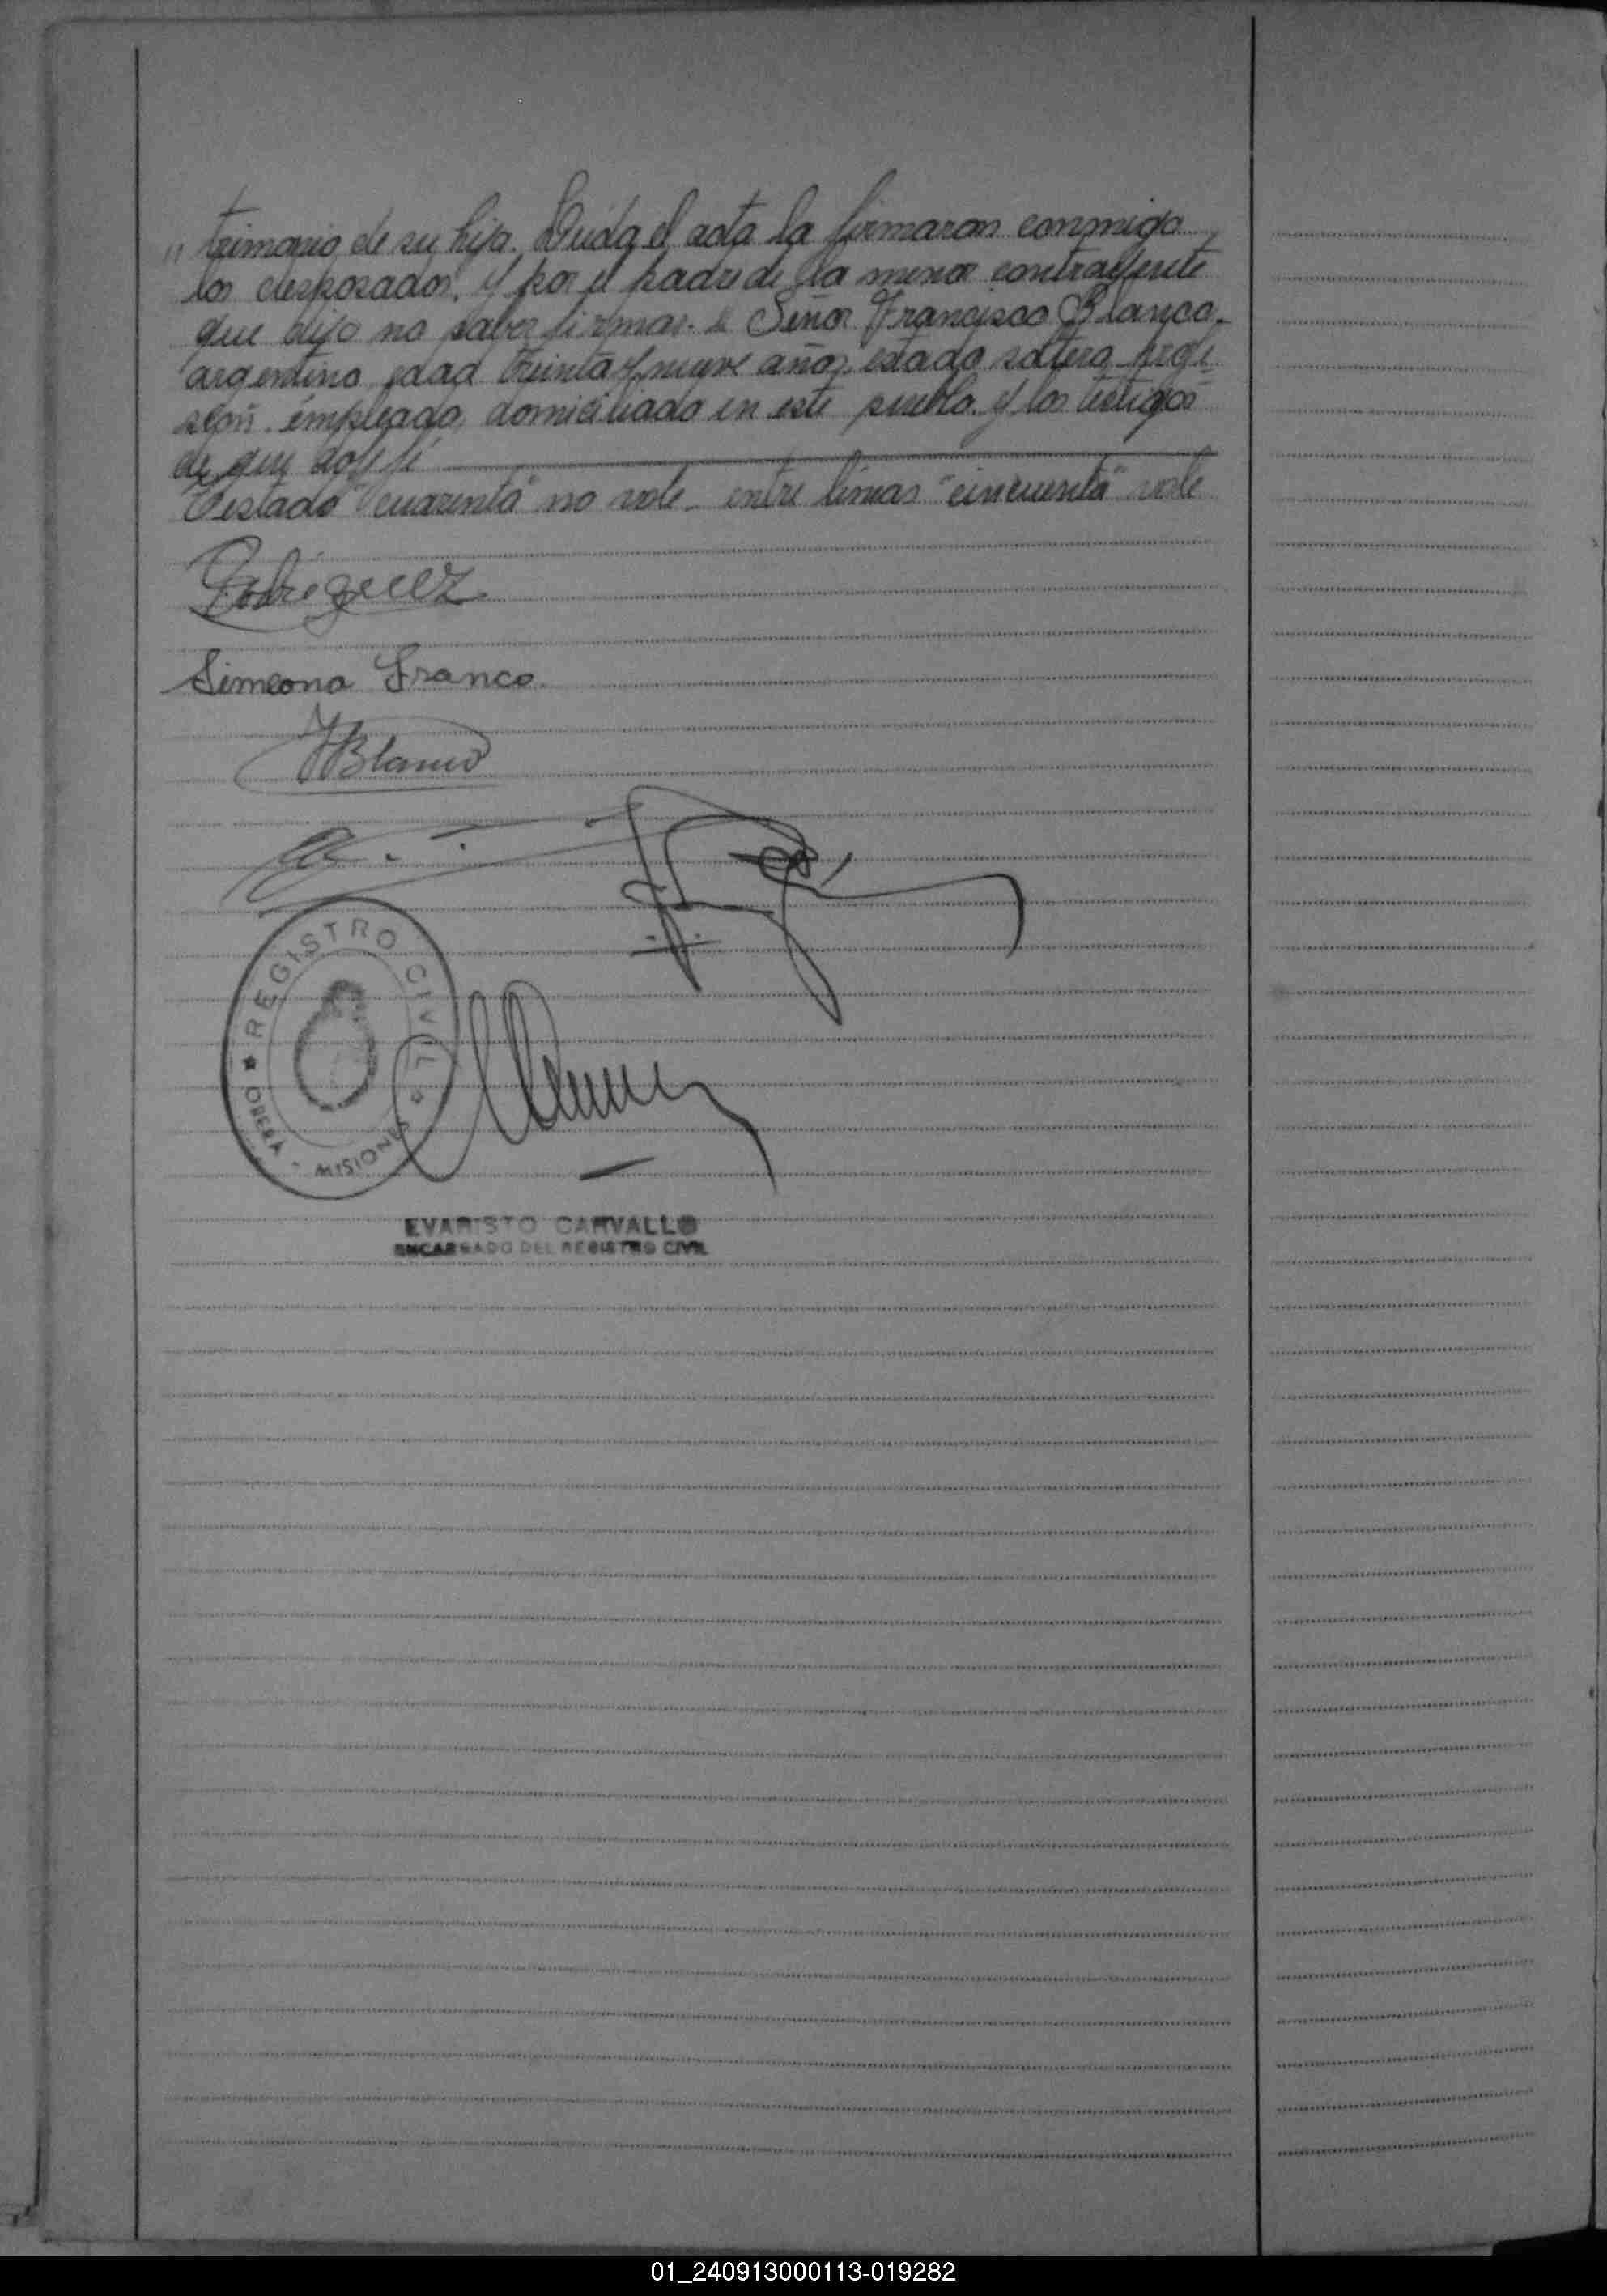 "trimonio de su hija. Leída el acta la firmaron conmigo
los desposados, y por el padre de la menor contrayente
que dijo no saber firmar. el Señor Francisco Blanco,
argentino edad treinta y nueve años, estado soltero, profe
sión. empleado, domiciliado en este pueblo. y los testigos
de que doy fe
Testado "cuarenta" no vale. entre líneas "cincuenta" vale
Rodriguez
Simeona Franco.
FBlanco
REGISTRO CIVIL
OBERA - MISIONES
EVARISTO CARVALLO
ENCARGADO DEL REGISTRO CIVIL
01_240913000113-019282